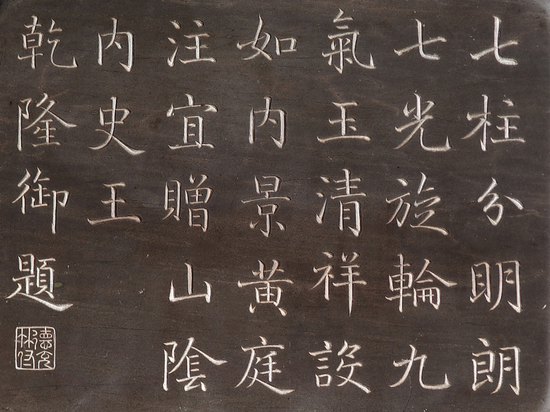 七柱分明朗
七光旋輪九
氣玉清祥設
如内景黄庭
注宜贈山陰
内史王
乾隆御題
德充符